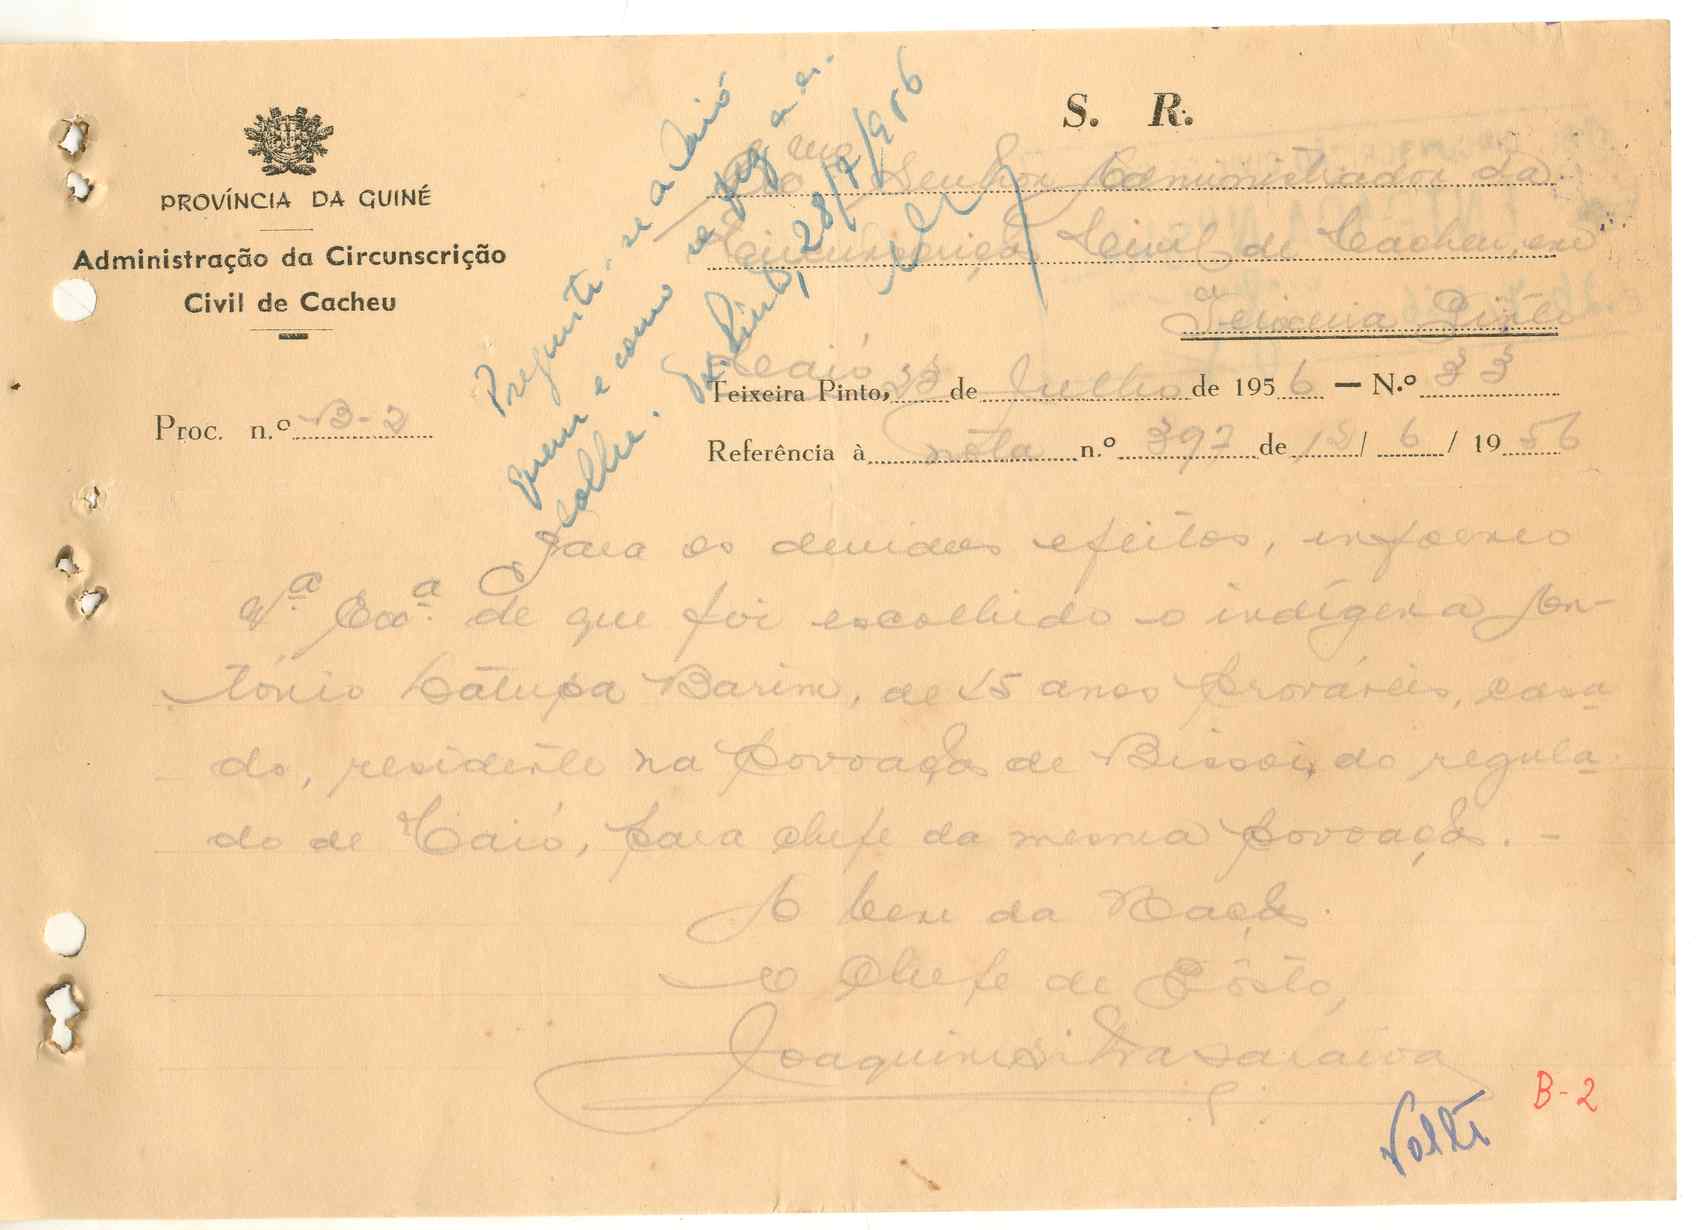 S. R.
PROVÍNCIA DA GUINÉ
Administração da Circunscrição
Civil de Cacheu
Ao Exmo Senhor Administrador da
Circunscrição Civil de Cacheu, em
Teixeira Pinto
Caió
Teixeira Pinto, 23 de Julho de 1956 — N.º 33
Proc. n.º B-2
Referência à nota n.º 397 de 15/ 6 / 1956
Pregunte-se a Caió
quem e como se fez a es-
colha. Tx. Pinto, 28/7/956
Para os devidos efeitos, informo
V.ª Exª. de que foi escolhido o indígena An-
tónio Catupa Barim, de 25 anos prováveis, casa-
do, residente na povoação de Bissoi, do regula-
do de Caió, para chefe da mesma povoação. -
A bem da Nação.
O Chefe de Pôsto,
Joaquim Silva Saraiva
B-2
Volte